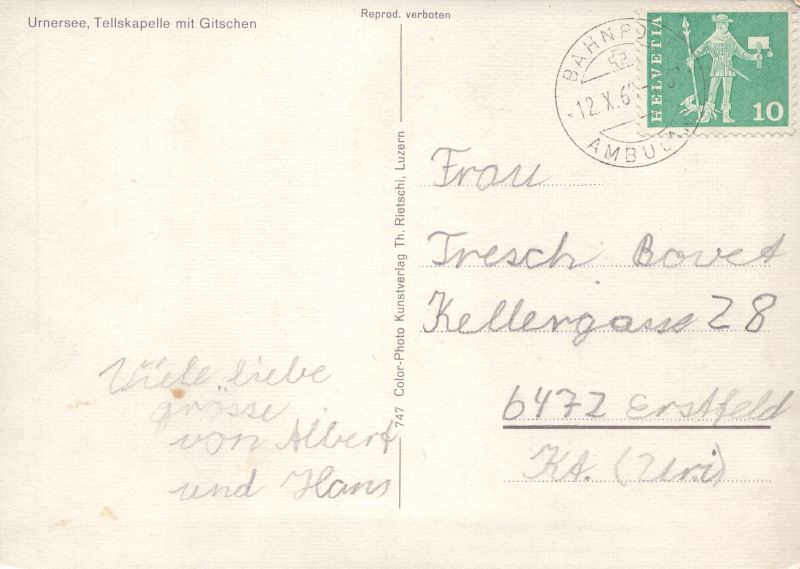 Urnersee, Tellskapelle mit Gitschen
Reprod. verboten
BAHNPO
12.X.6
AMBUL
HELVETIA
10
747 Color-Photo Kunstverlag Th. Rietschi, Luzern
Viele liebe
grösse
von Albert
und Hans
Frau
Tresch Bovet
Kellergasse 28
6472 Erstfeld
Kt. (Uri)